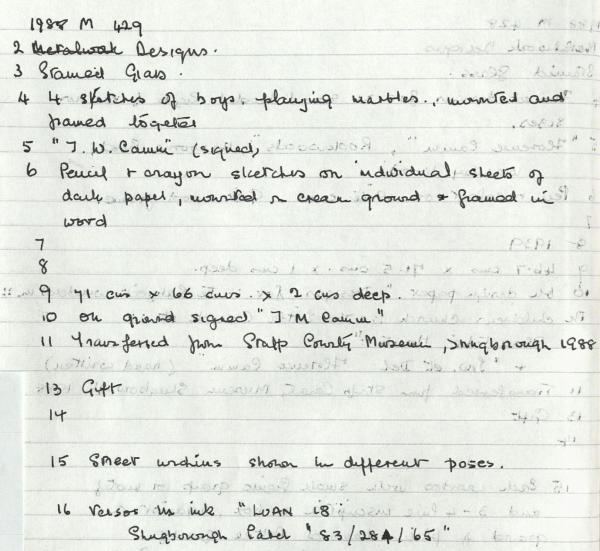 1988 M 429
2 Metalwork Designs.
3 Stained Glass.
4 4 sketches of boys playing marbles., mounted and
framed together
5 "J. W. Camm" (signed)
6 Pencil + crayon sketches on individual sheets of
dark paper, mounted on cream ground & framed in
wood
7
8
9 71 cms x 66 cms. x 2 cms deep.
10 On ground signed "J M Camm"
11 Transferred from Staff County Museum, Shugborough 1988
13 Gift
14
15 Street urchins shown in different poses.
16 Verso in ink "LOAN 18"
Shugborough Label "83/284/65"